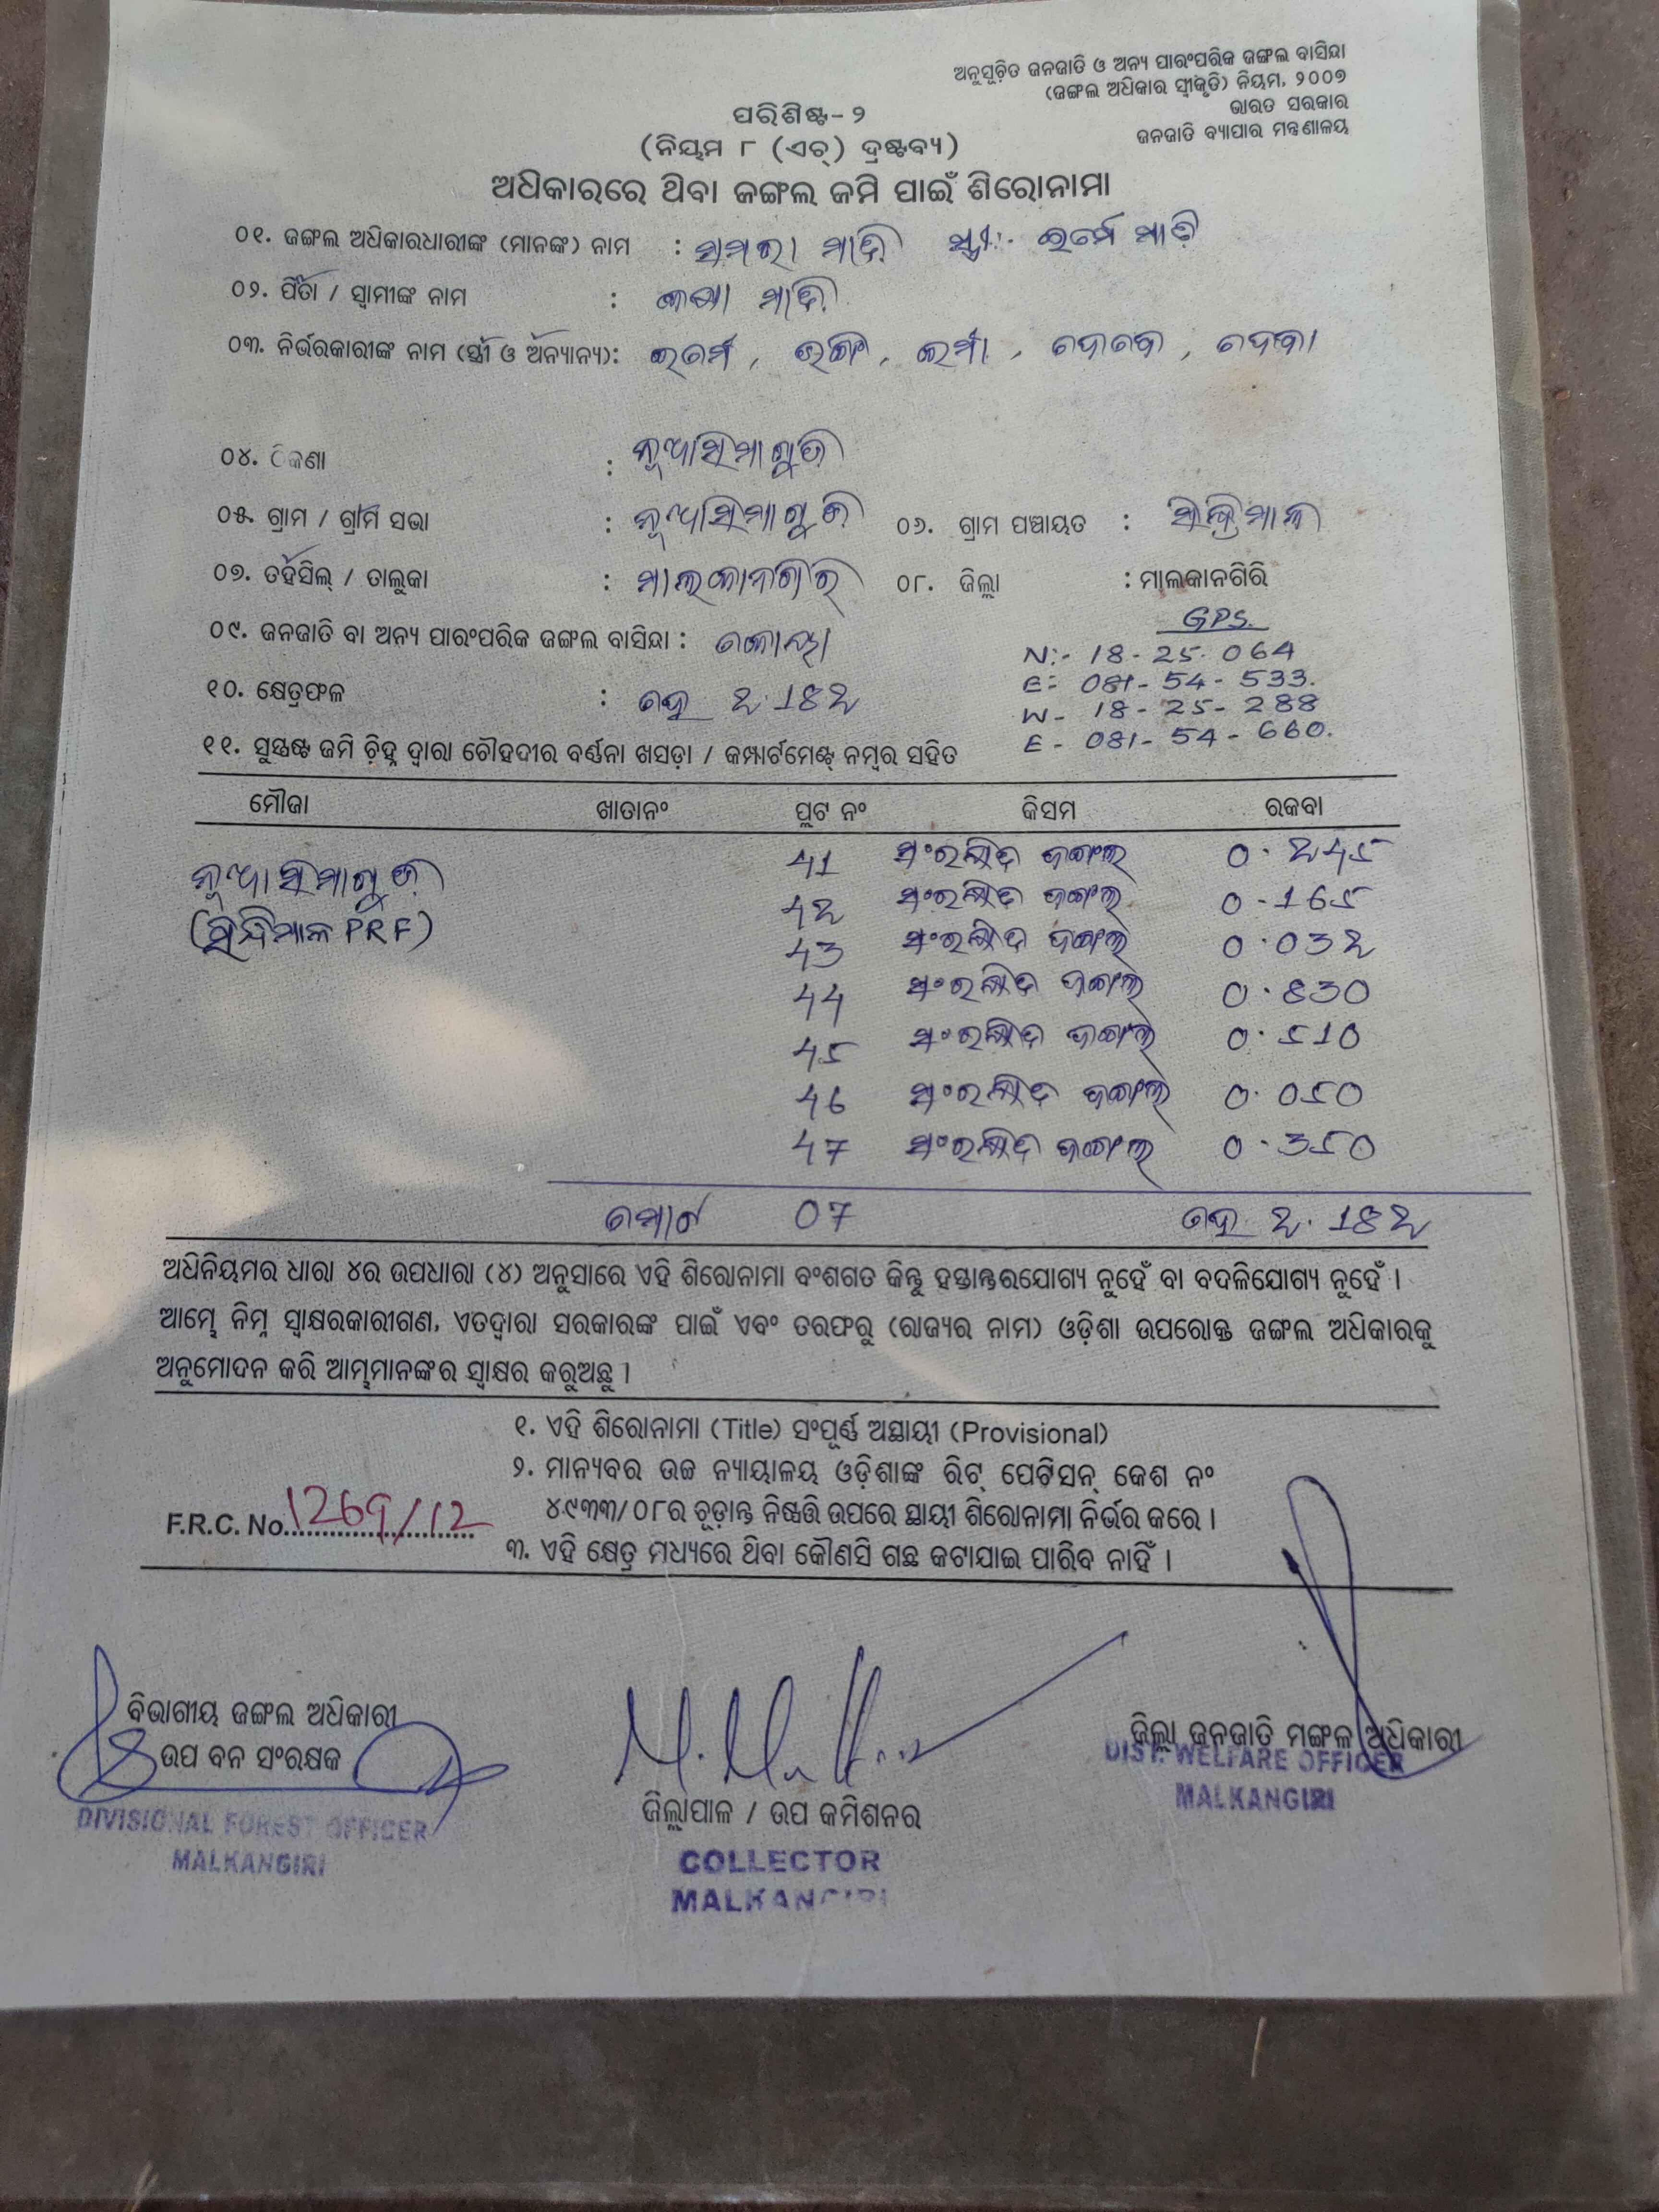 ଅନୁସୂଚିତ ଜନଜାତି ଓ ଅନ୍ୟ ପାରଂପରିକ ଜଙ୍ଗଲ ବାସିନ୍ଦା
(ଜଙ୍ଗଲ ଅଧିକାର ସ୍ୱୀକୃତି) ନିୟମ, ୨୦୦୭
ଭାରତ ସରକାର
ଜନଜାତି ବ୍ୟାପାର ମନ୍ତ୍ରଣାଳୟ
ପରିଶିଷ୍ଟ- ୨
(ନିୟମ ୮ (ଏଚ୍) ଦ୍ରଷ୍ଟବ୍ୟ)
ଅଧିକାରରେ ଥିବା ଜଙ୍ଗଲ ଜମି ପାଇଁ ଶିରୋନାମା
୦୧. ଜଙ୍ଗଲ ଅଧିକାରଧାରୀଙ୍କ (ମାନଙ୍କ) ନାମ : ସମରା ମାଡ଼ି ସ୍ତ୍ରୀ:- ଇର୍ମେ ମାଡ଼ି
୦୨. ପିତା / ସ୍ୱାମୀଙ୍କ ନାମ : ମାଡ଼ି
୦୩. ନିର୍ଭରକାରୀଙ୍କ ନାମ (ସ୍ତ୍ରୀ ଓ ଅନ୍ୟାନ୍ୟ): ଇର୍ମେ , , , ,
୦୪. ଠିକଣା : ନୂଆସିମାଗୁଡ଼ି
୦୫. ଗ୍ରାମ / ଗ୍ରାମ ସଭା : ନୂଆସିମାଗୁଡ଼ି ୦୬. ଗ୍ରାମ ପଞ୍ଚାୟତ : ସିନ୍ଦ୍ରିମାଳ
୦୭. ତହସିଲ୍ / ତାଲୁକା : ମାଲକାନଗିରି ୦୮. ଜିଲ୍ଲା : ମାଲକାନଗିରି
GPS.
୦୯. ଜନଜାତି ବା ଅନ୍ୟ ପାରଂପରିକ ଜଙ୍ଗଲ ବାସିନ୍ଦା : କୋୟା
N:- 18-25.064
E:- 081-54-533.
୧୦. କ୍ଷେତ୍ରଫଳ : ହେ 2.182
W- 18-25-288
E- 081-54-660.
୧୧. ସୁସ୍ପଷ୍ଟ ଜମି ଚିହ୍ନ ଦ୍ୱାରା ଚୌହଦୀର ବର୍ଣ୍ଣନା ଖସଡ଼ା / କମ୍ପାର୍ଟମେଣ୍ଟ୍ ନମ୍ବର ସହିତ
ମୌଜା ଖାତାନଂ ପ୍ଲଟ ନଂ କିସମ ରକବା
ନୂଆସିମାଗୁଡ଼ି 41 ସଂରକ୍ଷିତ ଜଙ୍ଗଲ 0.245
(ସିନ୍ଦ୍ରିମାଳ PRF) 42 ସଂରକ୍ଷିତ ଜଙ୍ଗଲ 0.165
43 ସଂରକ୍ଷିତ ଜଙ୍ଗଲ 0.032
44 ସଂରକ୍ଷିତ ଜଙ୍ଗଲ 0.830
45 ସଂରକ୍ଷିତ ଜଙ୍ଗଲ 0.510
46 ସଂରକ୍ଷିତ ଜଙ୍ଗଲ 0.050
47 ସଂରକ୍ଷିତ ଜଙ୍ଗଲ 0.350
ମୋଟ 07 ହେ 2.182
ଅଧିନିୟମର ଧାରା ୪ର ଉପଧାରା (୪) ଅନୁସାରେ ଏହି ଶିରୋନାମା ବଂଶଗତ କିନ୍ତୁ ହସ୍ତାନ୍ତରଯୋଗ୍ୟ ନୁହେଁ ବା ବଦଳିଯୋଗ୍ୟ ନୁହେଁ ।
ଆମ୍ଭେ ନିମ୍ନ ସ୍ୱାକ୍ଷରକାରୀଗଣ, ଏତଦ୍ୱାରା ସରକାରଙ୍କ ପାଇଁ ଏବଂ ତରଫରୁ (ରାଜ୍ୟର ନାମ) ଓଡ଼ିଶା ଉପରୋକ୍ତ ଜଙ୍ଗଲ ଅଧିକାରକୁ
ଅନୁମୋଦନ କରି ଆମ୍ଭମାନଙ୍କର ସ୍ୱାକ୍ଷର କରୁଅଛୁ ।
୧. ଏହି ଶିରୋନାମା (Title) ସଂପୂର୍ଣ୍ଣ ଅସ୍ଥାୟୀ (Provisional)
୨. ମାନ୍ୟବର ଉଚ୍ଚ ନ୍ୟାୟାଳୟ ଓଡ଼ିଶାଙ୍କ ରିଟ୍ ପେଟିସନ୍ କେଶ ନଂ
୪୯୩୩/୦୮ର ଚୂଡ଼ାନ୍ତ ନିଷ୍ପତ୍ତି ଉପରେ ସ୍ଥାୟୀ ଶିରୋନାମା ନିର୍ଭର କରେ ।
F.R.C. No. 1269/12
୩. ଏହି କ୍ଷେତ୍ର ମଧ୍ୟରେ ଥିବା କୌଣସି ଗଛ କଟାଯାଇ ପାରିବ ନାହିଁ ।
ବିଭାଗୀୟ ଜଙ୍ଗଲ ଅଧିକାରୀ
ଉପ ବନ ସଂରକ୍ଷକ
DIVISIONAL FOREST OFFICER
MALKANGIRI
ଜିଲ୍ଲାପାଳ / ଉପ କମିଶନର
COLLECTOR
MALKANGIRI
ଜିଲ୍ଲା ଜନଜାତି ମଙ୍ଗଳ ଅଧିକାରୀ
DIST. WELFARE OFFICER
MALKANGIRI